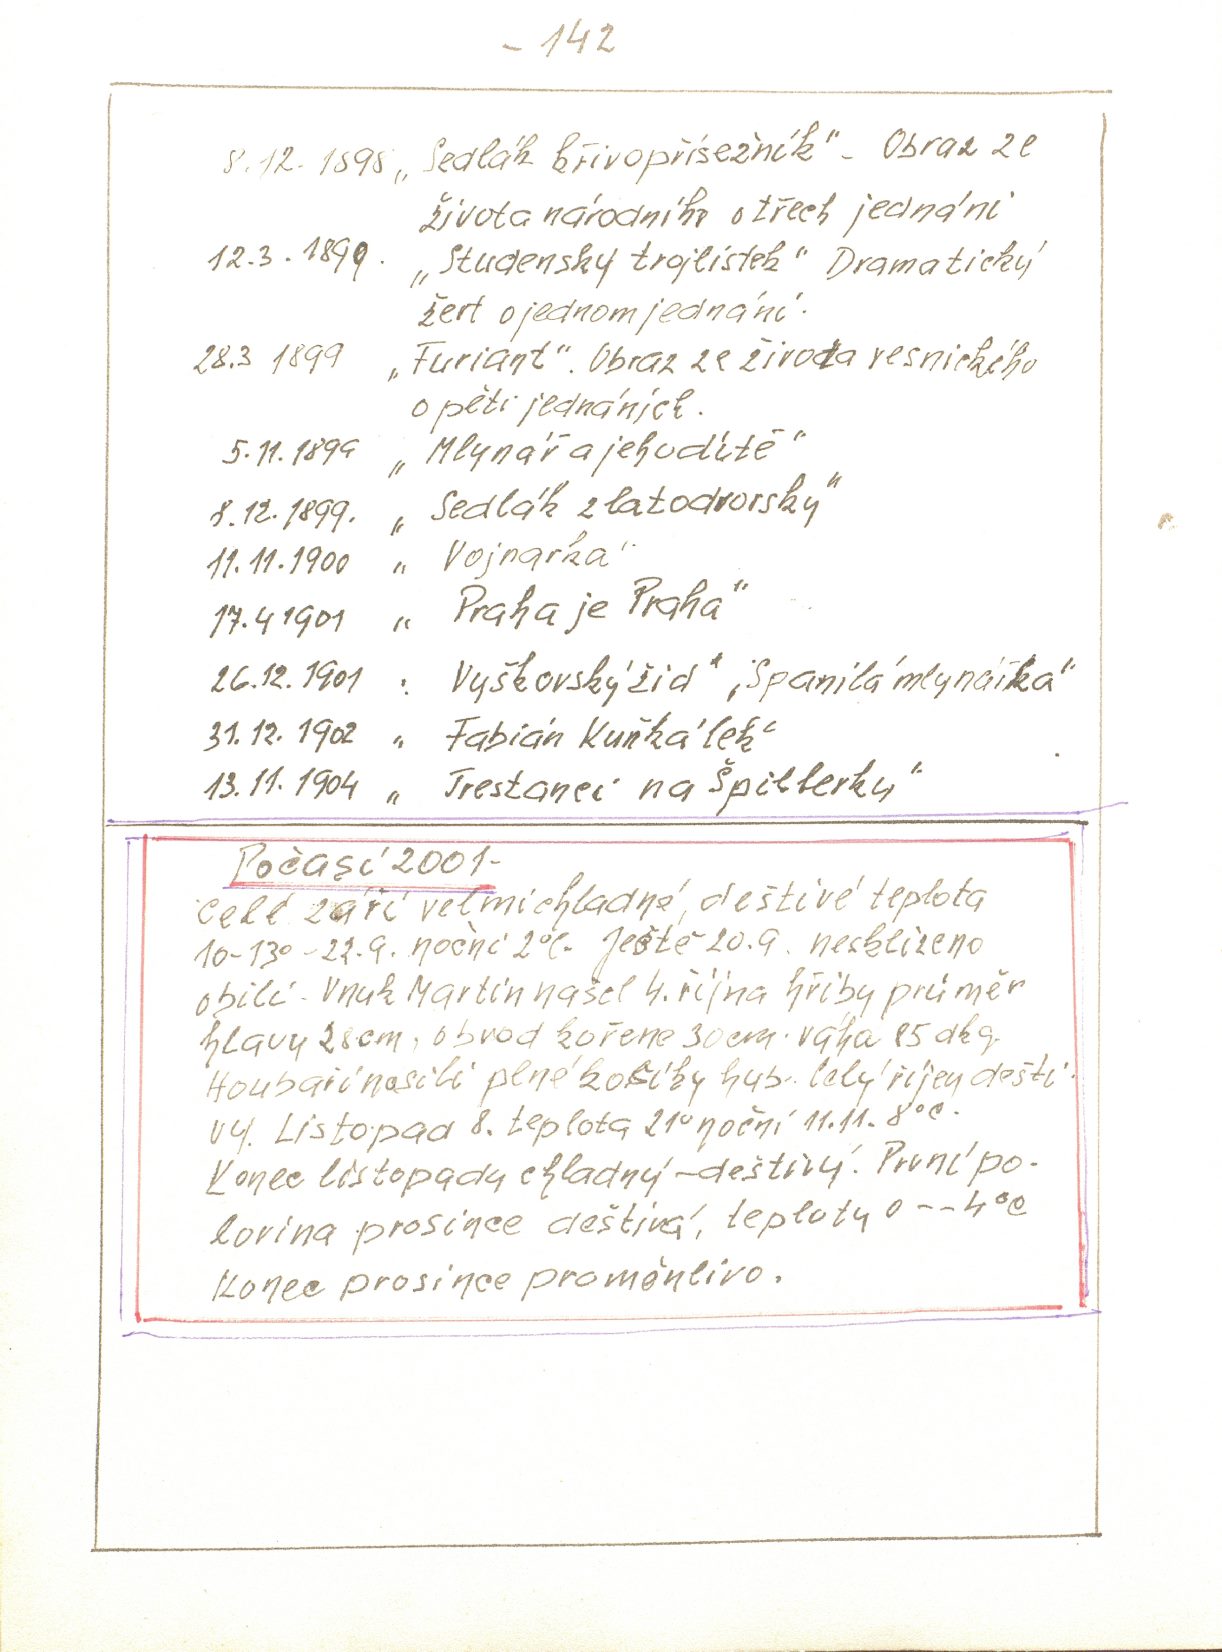 - 142
8.12. 1898 „Sedlák křivopřísežník“ - Obraz ze
života národního o třech jednání
12.3. 1899. „Studenský trojlístek“ Dramatický
žert o jednom jednání.
28.3 1899 „Furiant“. Obraz ze života vesnického
o pěti jednáních.
5.11.1899 „Mlynář a jeho dítě“
8.12.1899. „Sedlák zlatodvorský“
11.11.1900 „Vojnarka“
17.4 1901 „Praha je Praha“
26.12.1901 „Vyškovský žid“ „Spanilá mlynářka“
31.12.1902 „Fabián Kuňkálek“
13.11.1904 „Trestanci na Špilberku“
Počasí 2001-
Celé září velmi chladné, deštivé teplota
10-13° - 22.9. noční 2°C. Ještě 20.9. nesklizeno
obilí. Vnuk Martin našel 4. října hřiby průměr
hlavy 28cm, obvod kořene 30cm. váha 85 dkg.
Houbaři nosili plné košíky hub. Celý říjen dešti-
vý. Listopad 8. teplota 21° noční 11.11. 8°C.
Konec listopadu chladný - deštivý. První po-
lovina prosince deštivá, teploty 0 - -4°C
Konec prosince proměnlivo.